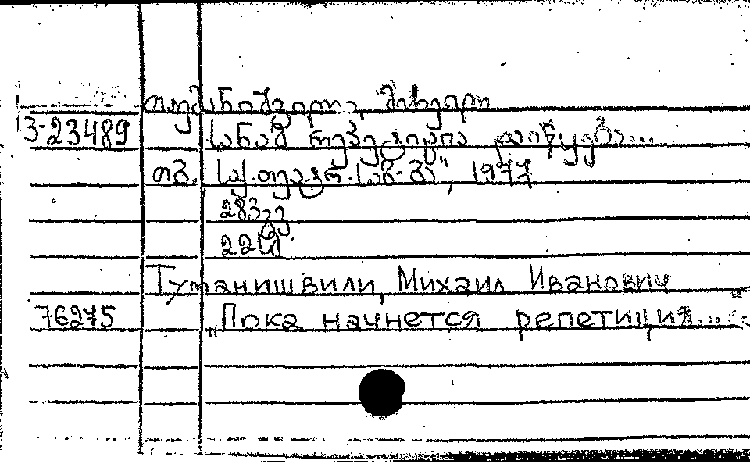 თუმანიშვილი, მიხეილ
3-23489 სანამ რეპეტიცია დაიწყება...
თბ. საქ. თეატრ. საზ-ბა", 1977
283 გვ.
Туманишвили, Михаил Иванович
76275 „Пока начнется репетиция...